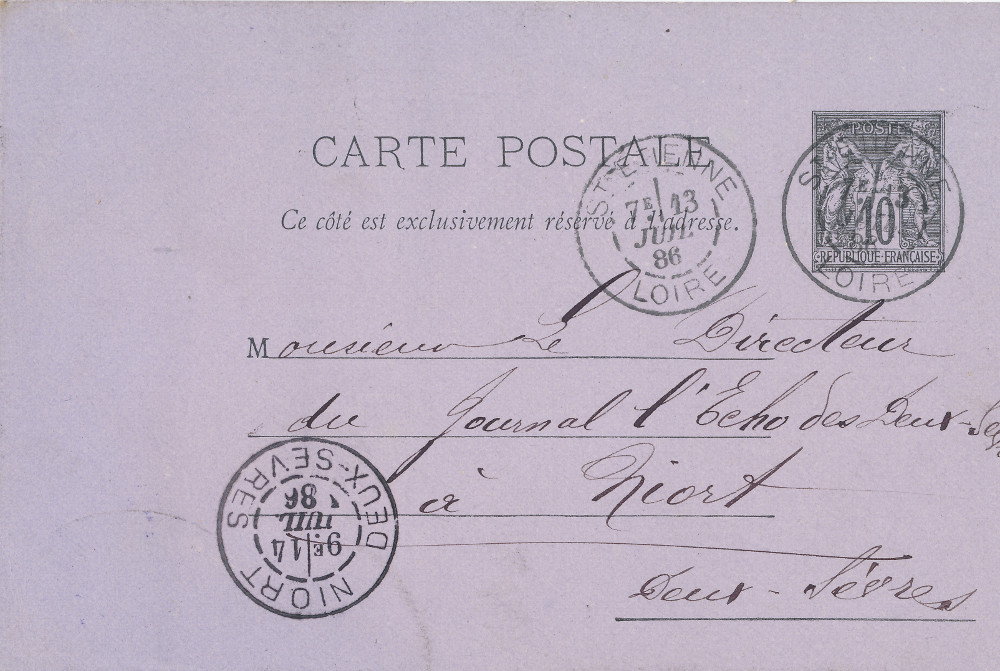 CARTE POSTALE
Ce côté est exclusivement réservé à l'adresse.
ST ETIENNE
7E 13
JUIL
86
LOIRE
POSTE
ST ETIENNE
7E 13
10
REPUBLIQUE FRANÇAISE
LOIRE
Monsieur Le Directeur
du Journal l'Echo des Deux-Sev
à Niort
Deux-Sèvres
NIORT
9E 14
JUIL
86
DEUX-SEVRES